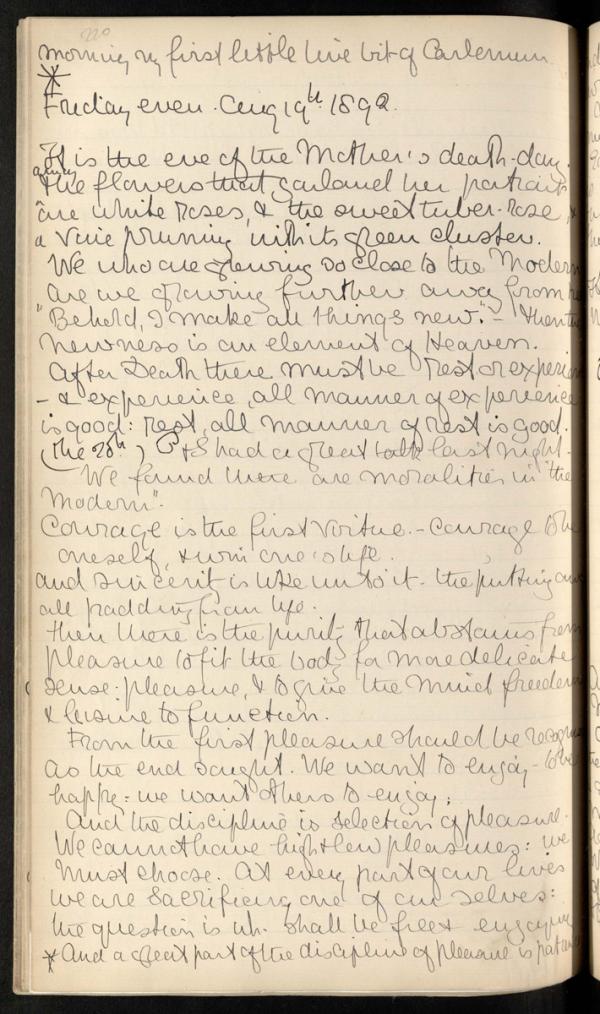 220
morning my first little live bit of
*
Friday even. Aug 19th 1892.
It is the eve of the Mother's death-day.
among
the flowers that garland her portrait
are white roses, & the sweet tuber-rose, &
a vine pruning with its green cluster.
We who are growing so close to the Modern
are we growing further away from
"Behold, I make all things new." – then the
newness is an element of Heaven.
After Death there must be rest or experien
– & experience, all manner of experience
is good: rest, all manner of rest is good.
(The 20th) P & S had a great talk last night.
We found there are moralities in "the
Modern".
Courage is the first virtue. – Courage to be
oneself, & win one's life.
and sincerity is like unto it – the putting away
all padding from life.
Then there is the purity that abstains from
pleasure to fit the body for more delicate
sense-pleasure, & to give the mind freedom
& leisure to function.
From the first pleasure should be recogn
as the end sought. We want to enjoy – to be
happy: we want others to enjoy.
And the discipline is selection of pleasure.
We cannot have high & low pleasures: we
must choose. At every part of our lives
we are sacrificing one of our selves:
the question is wh. shall be free & enjoying
* And a great part of the discipline of pleasure is